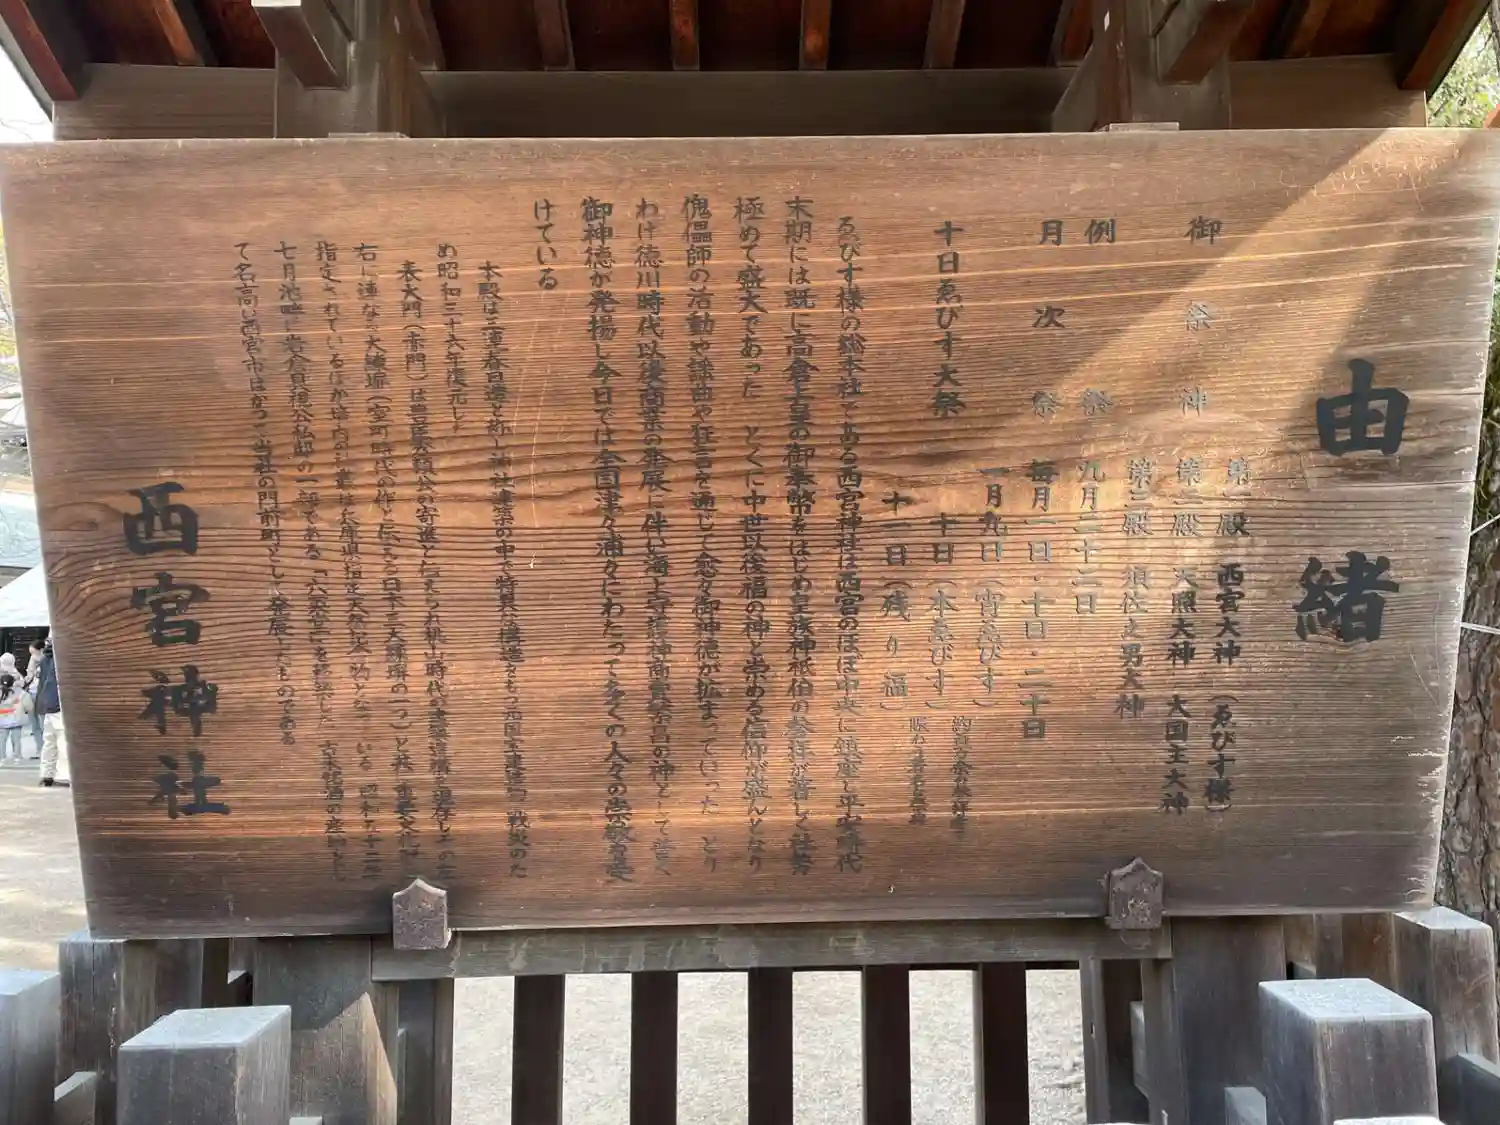 由緒
御祭神 第一殿 西宮大神(ゑびす様)
第二殿 天照大神 大国主大神
第三殿 須佐之男大神
例祭 九月二十二日
月次祭 毎月一日・十日・二十日
十日ゑびす大祭 一月九日(宵ゑびす)
十日(本ゑびす) 約百万余の参拝者で
十一日(残り福) 賑わう
ゑびす様の総本社である西宮神社は西宮のほぼ中央に鎮座し平安時代
末期には既に高倉上皇の御奉幣をはじめ皇族神祇伯の参拝が著しく社勢
極めて盛大であった とくに中世以後福の神と崇める信仰が盛んとなり
傀儡師の活動や謡曲や狂言を通じて愈々御神徳が拡まっていった とり
わけ徳川時代以後商業の発展に伴い海上守護神商売繁昌の神として普く
御神徳が発揚し今日では全国津々浦々にわたって多くの人々の崇敬を受
けている
本殿は三連春日造と称し神社建築の中で特異な構造をもつ元国宝建造物 戦災のた
め昭和三十六年復元し
表大門(赤門)は豊臣秀頼公の寄進と伝えられ桃山時代の建築遺構を遺存しその左
右に連なる大練塀(室町時代の作と伝える日本三大練塀の一つ)と共に重要文化財に
指定されているほか境内の社叢は兵庫県指定天然記念物となっている 昭和五十二年
七月池畔に岩倉具視公私邸の一部である「六英堂」を移築した 古来銘酒の産地とし
て名高い西宮市はかつて当社の門前町として発展したものである
西宮神社